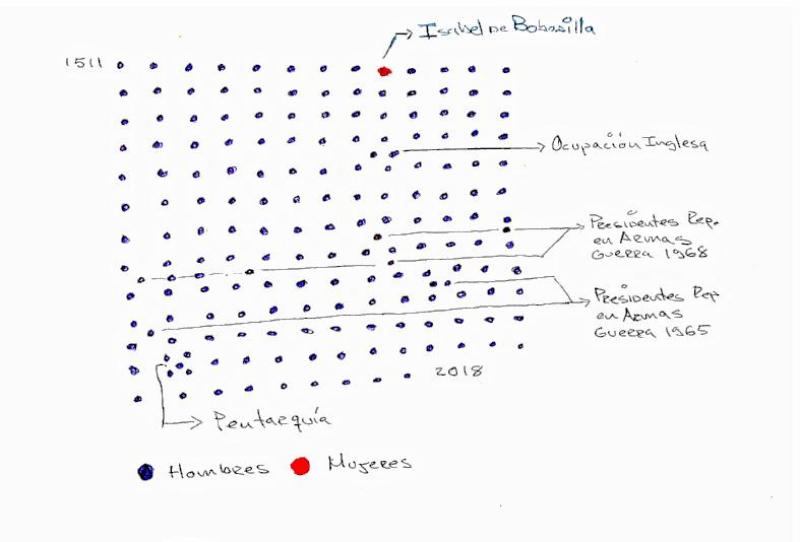 Isabel de Bobadilla
1511
Ocupación Inglesa
Presidentes Rep.
en Armas
Guerra 1968
Presidentes Rep
en Armas
Guerra 1965
2018
Pentarquía
Hombres
Mujeres